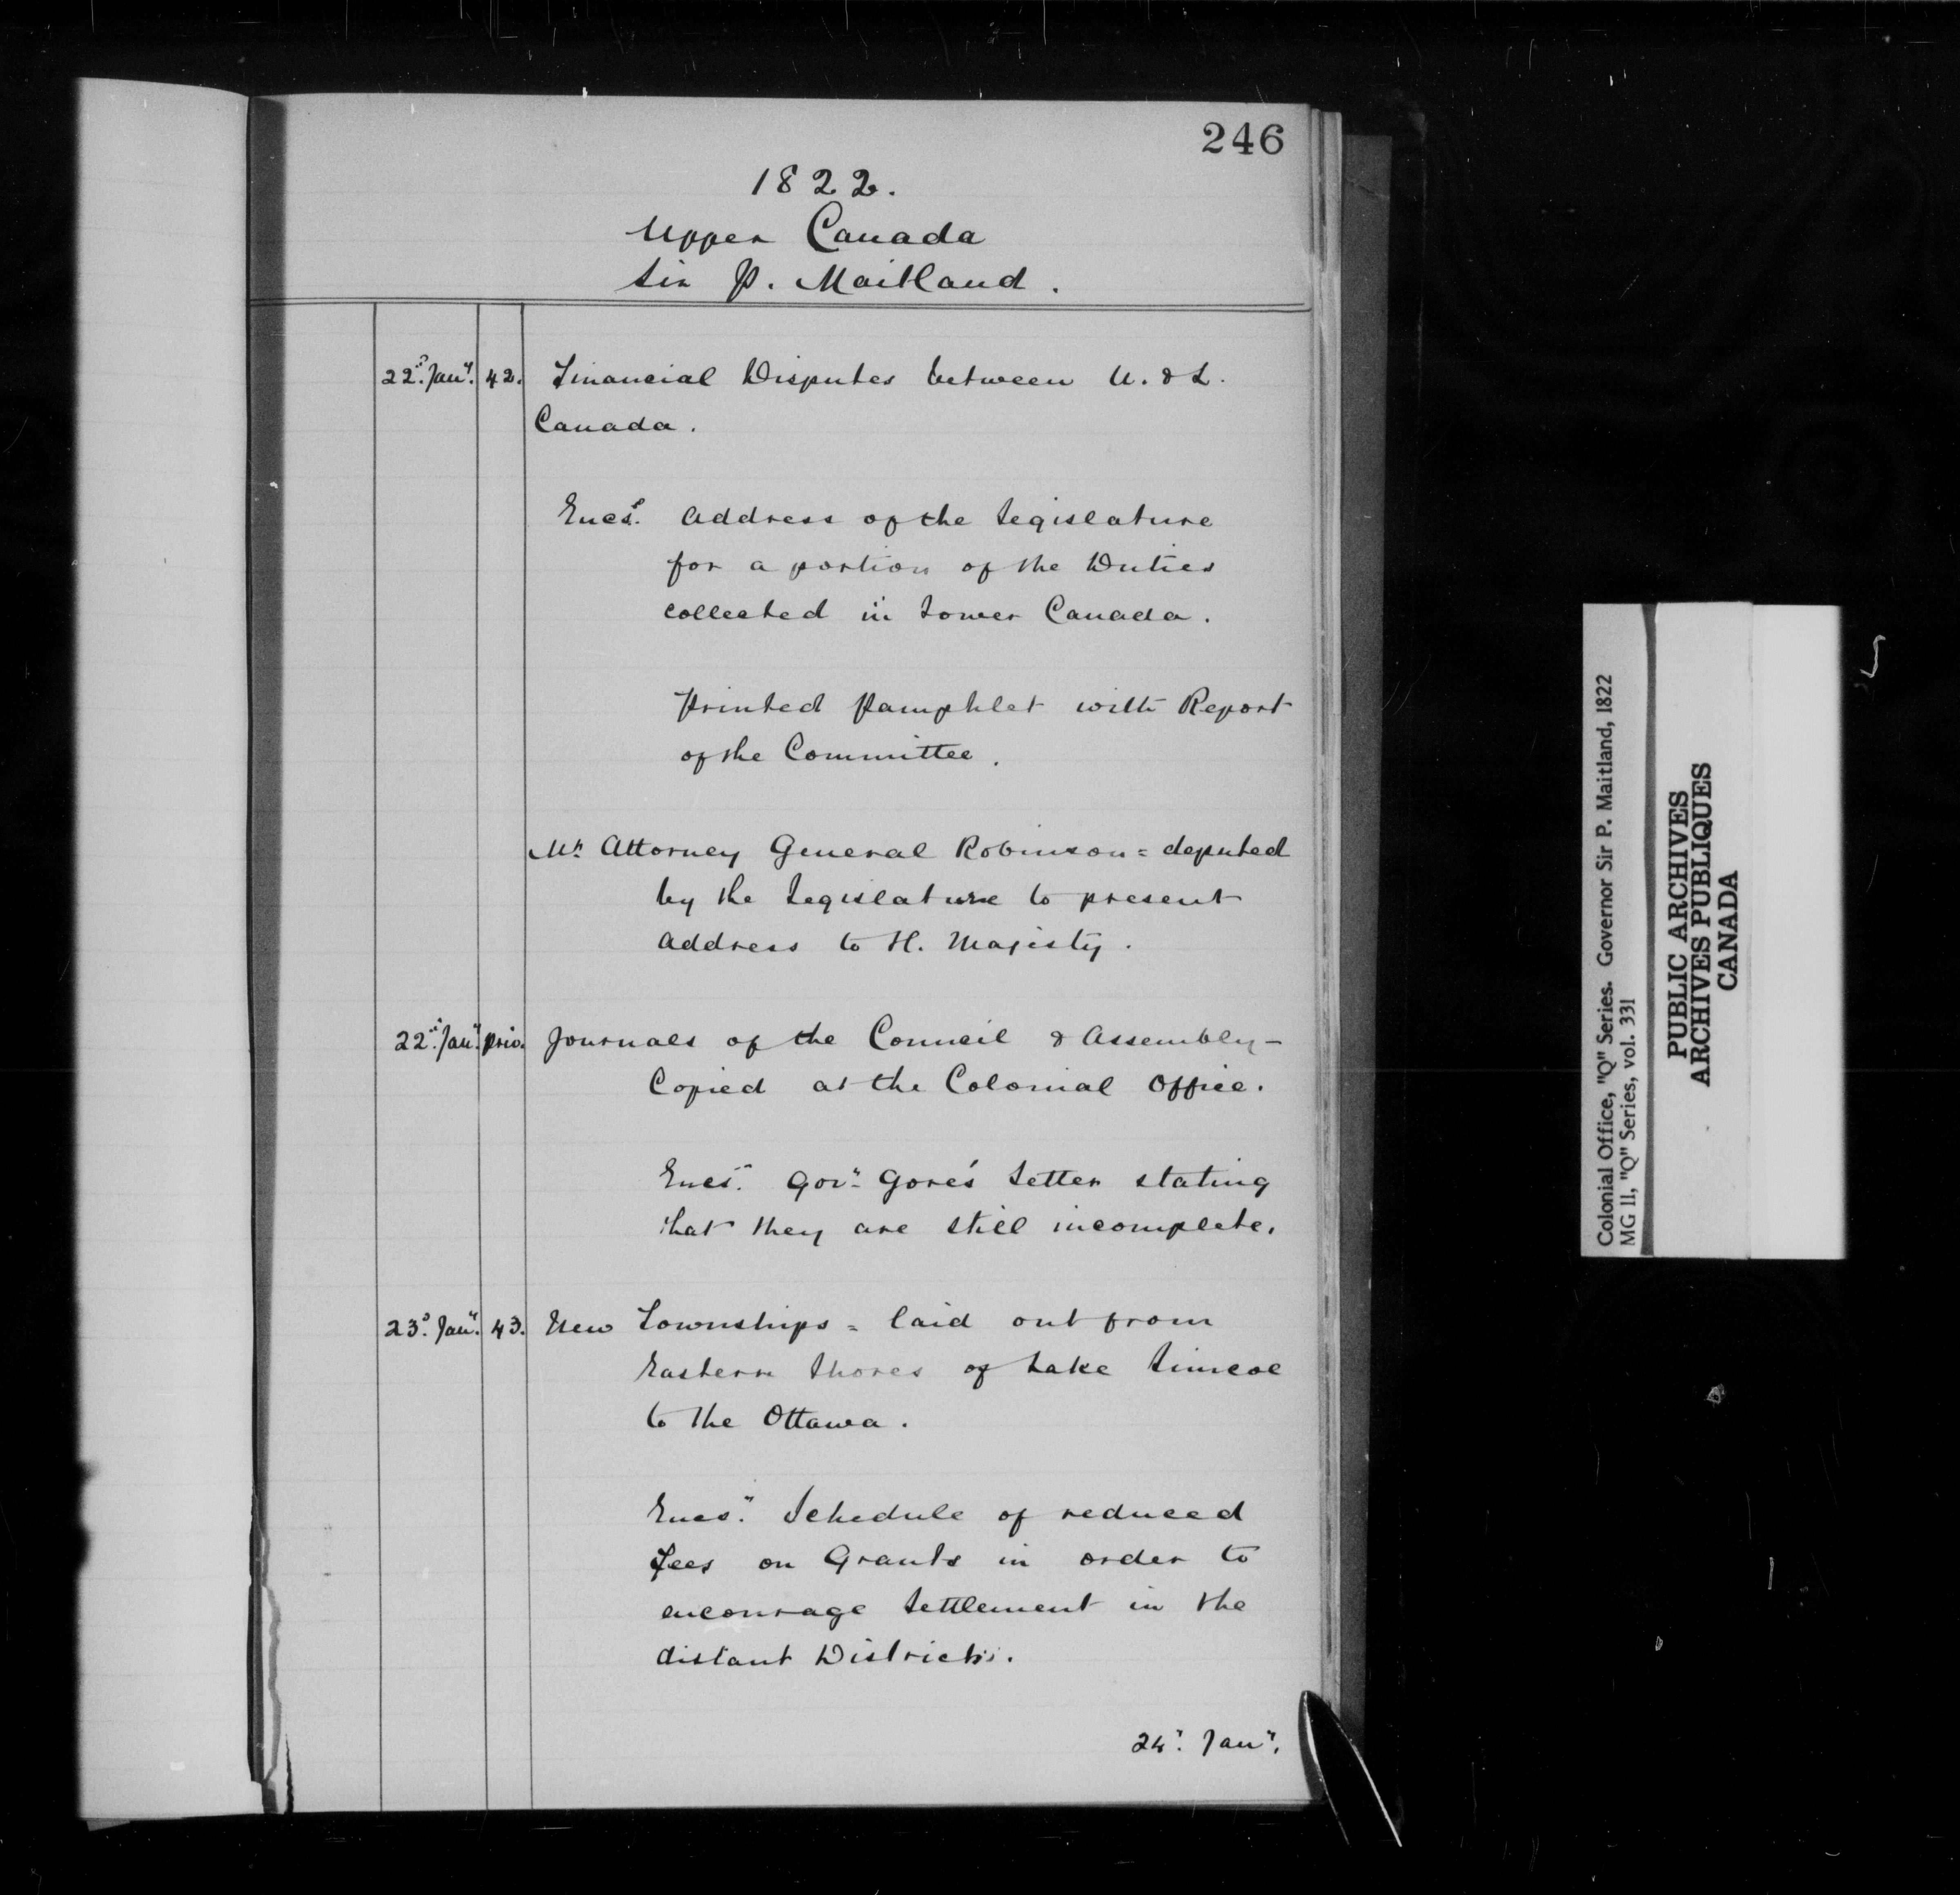 246
1822.
Upper Canada
Sir P. Maitland.
22d. Jany. 42. Financial Disputes between U. & L.
Canada.
Encs. Address of the Legislature
for a portion of the Duties
collected in Lower Canada.
Printed Pamphlet with Report
of the Committee.
Mr. Attorney General Robinson = deputed
by the Legislature to present
Address to H. Majesty.
22d. Jany. priv. Journals of the Council & Assembly –
Copied at the Colonial Office.
Encs. Govr. Gore's Letter stating
that they are still incomplete.
23d. Jany. 43. New Townships = laid out from
Eastern Shores of Lake Simcoe
to the Ottawa.
Encs. Schedule of reduced
Fees on Grants in order to
encourage Settlement in the
distant Districts.
24. Jany.
Colonial Office, "Q" Series. Governor Sir P. Maitland, 1822
MG 11, "Q" Series, vol. 331
PUBLIC ARCHIVES
ARCHIVES PUBLIQUES
CANADA